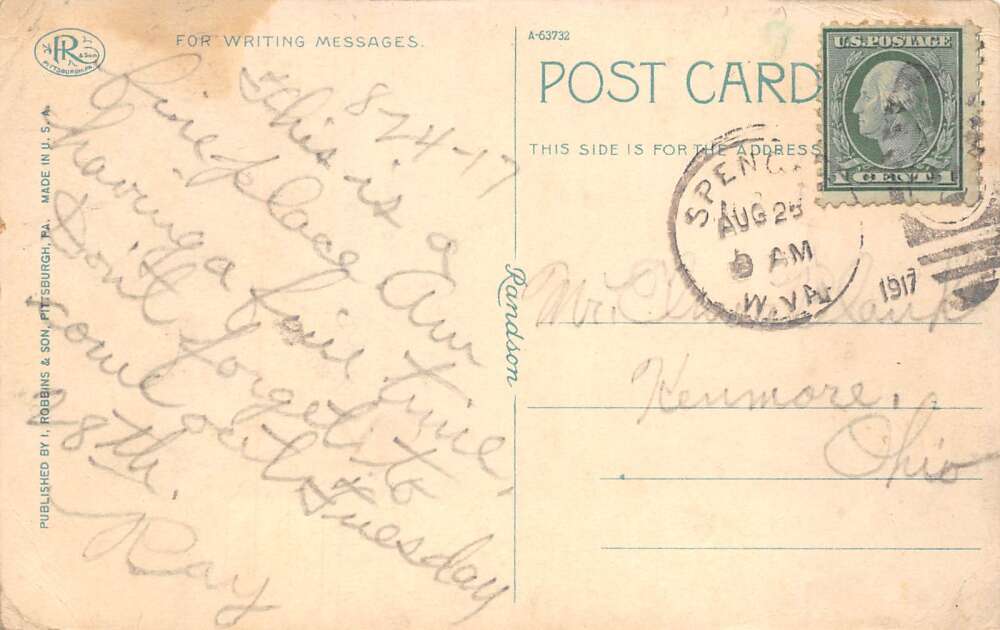 R
& Son
PITTSBURGH, PA.
FOR WRITING MESSAGES.
PUBLISHED BY I. ROBBINS & SON, PITTSBURGH, PA. MADE IN U. S. A.
8-24-17
This is a
fine place Am
having a fine time,
Don't forget to
come out Tuesday
28th.
Ray
Randson
A-63732
POST CARD
THIS SIDE IS FOR THE ADDRESS
U.S. POSTAGE
1 CENT 1
SPENC
AUG 25
AM
W. VA.
1917
Mr.
Kenmore,
Ohio